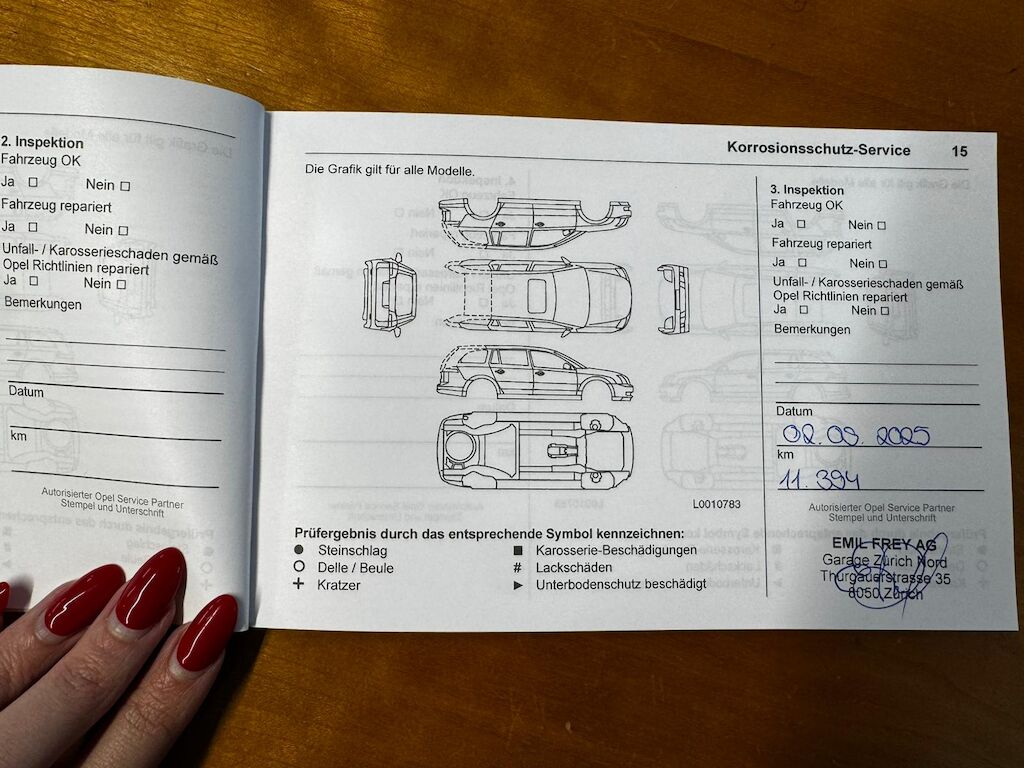 2. Inspektion
Fahrzeug OK
Ja □ Nein □
Fahrzeug repariert
Ja □ Nein □
Unfall- / Karosserieschaden gemäß
Opel Richtlinien repariert
Ja □ Nein □
Bemerkungen
Datum
km
Autorisierter Opel Service Partner
Stempel und Unterschrift
Korrosionsschutz-Service 15
Die Grafik gilt für alle Modelle.
L0010783
Prüfergebnis durch das entsprechende Symbol kennzeichnen:
● Steinschlag
○ Delle / Beule
+ Kratzer
■ Karosserie-Beschädigungen
# Lackschäden
► Unterbodenschutz beschädigt
3. Inspektion
Fahrzeug OK
Ja □ Nein □
Fahrzeug repariert
Ja □ Nein □
Unfall- / Karosserieschaden gemäß
Opel Richtlinien repariert
Ja □ Nein □
Bemerkungen
Datum
02.09.2025
km
11.394
Autorisierter Opel Service Partner
Stempel und Unterschrift
EMIL FREY AG
Garage Zürich Nord
Thurgauerstrasse 35
8050 Zürich